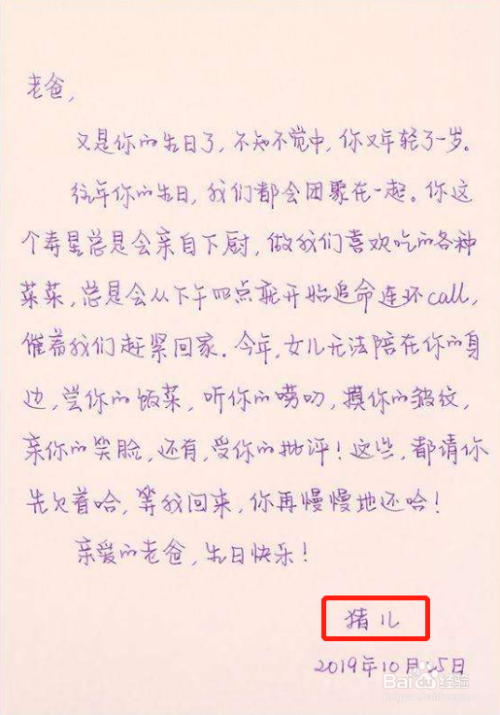 老爸，
又是你的生日了，不知不觉中，你又年轻了一岁。
往年你的生日，我们都会团聚在一起。你这
个寿星总是会亲自下厨，做我们喜欢吃的各种
菜菜，总是会从下午四点就开始追命连环call，
催着我们赶紧回家。今年，女儿无法陪在你的身
边，尝你的饭菜，听你的唠叨，摸你的皱纹，
亲你的笑脸，还有，受你的批评！这些，都请你
先欠着哈，等我回来，你再慢慢地还哈！
亲爱的老爸，生日快乐！
猪儿
2019年10月25日
Baidu经验